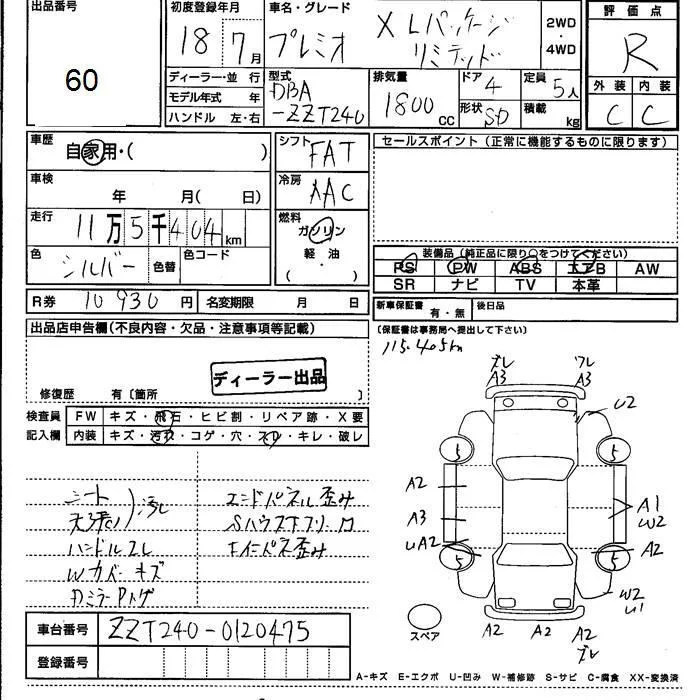 出品番号
60
初度登録年月
18 7月
車名・グレード
プレミオ
XLパッケージ
リミテッド
2WD
・
4WD
評価点
R
ディーラー・並 行
モデル年式 年
ハンドル 左・右
型式
DBA
-ZZT240
排気量
1800cc
ドア
4
形状 SD
定員
5人
積載
kg
外装 内装
C C
車歴
自家用・( )
シフト
FAT
セールスポイント(正常に機能するものに限ります)
車検
年 月( 日)
冷房
AAC
走行
11万5千404km
燃料
ガソリン
軽・油
( ・ )
色
シルバー
色替
色コード
装備品(純正品に限り○をつけてください)
PS PW ABS エアB AW
SR ナビ TV 本革
R券 10930円 名変期限 月 日
新車保証書 有・無 後日品
(保証書は事務局へ提出して下さい)
115.405km
出品店申告欄(不良内容・欠品・注意事項等記載)
ディーラー出品
修復歴 有〔箇所 〕
検査員
記入欄
FW キズ・飛石・ヒビ割・リペア跡・X要
内装 キズ・汚れ・コゲ・穴・スレ・キレ・破レ
シート
天張り
汚れ
ハンドルスレ
Wカバーキズ
エンドパネル歪み
車台番号 ZZT240-0120475
登録番号
ズレ
A3
ワレ
A3
U2
5 5
A2
A3
UA2
A1
W2
5 5
A2
W2
U1
スペア
A2 A2 A2
ズレ
A-キズ E-エクボ U-凹み W-補修跡 S-サビ C-腐食 XX-変換済